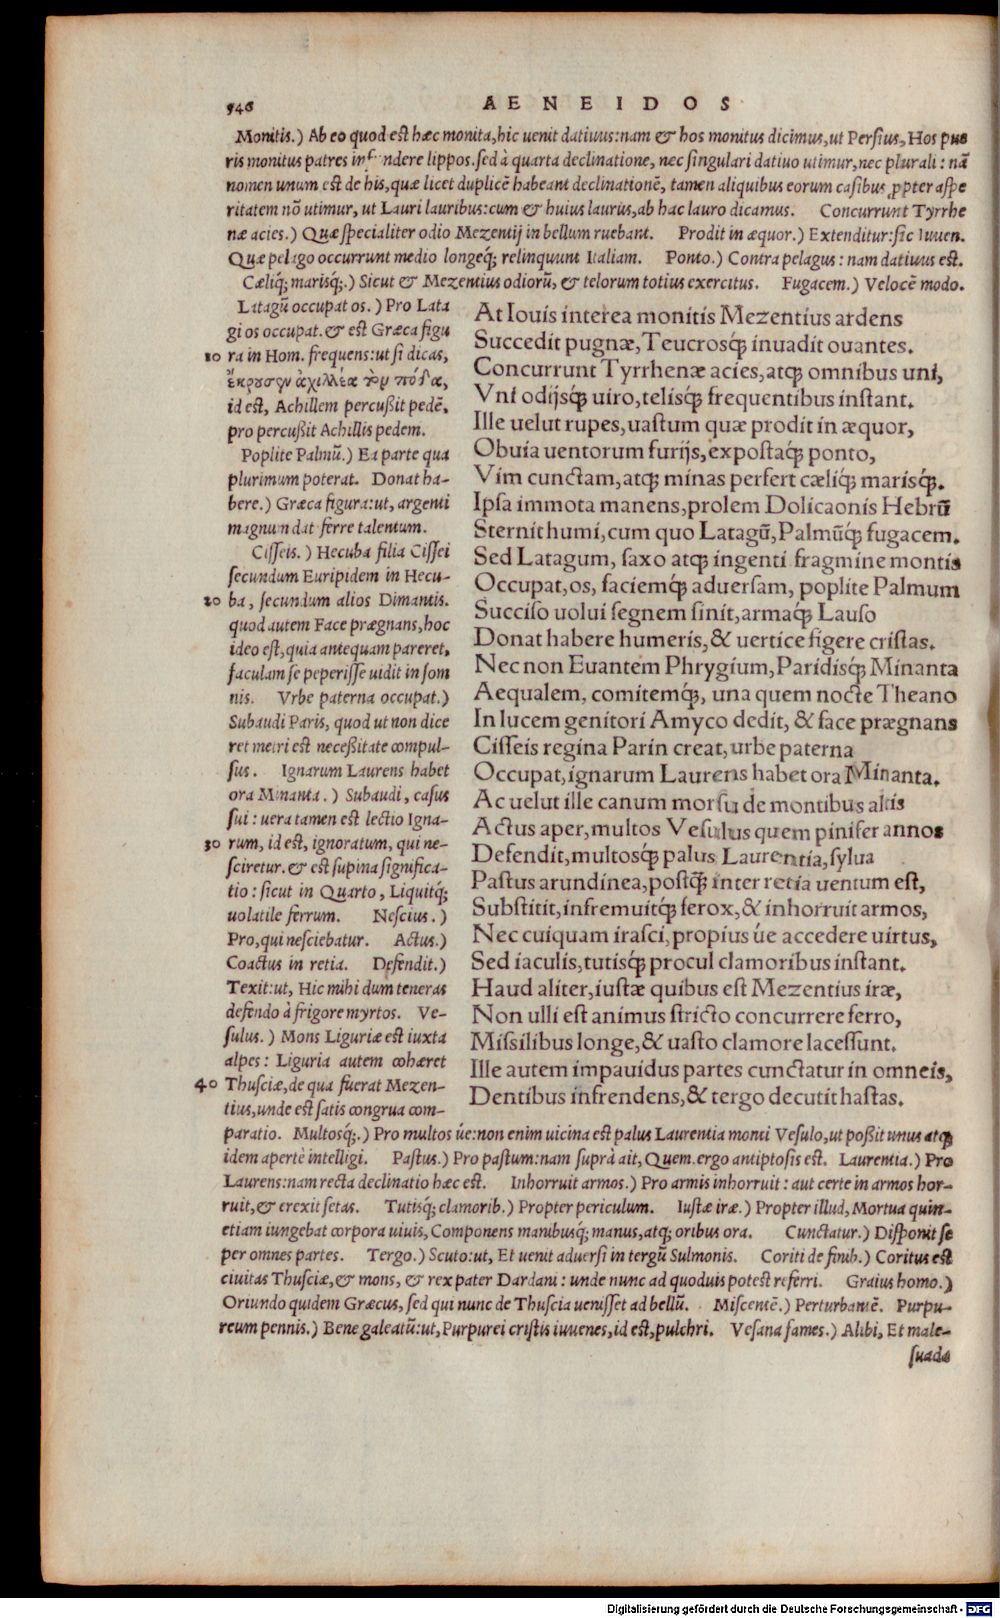 546
AENEIDOS
Monitis.) Ab eo quod est hæc monita, hic uenit datiuus: nam & hos monitus dicimus, ut Persius, Hos pue
ris monitus patres infundere lippos. sed à quarta declinatione, nec singulari datiuo utimur, nec plurali: nã
nomen unum est de his, quæ licet duplicẽ habeant declinationẽ, tamen aliquibus eorum casibus ꝓpter aspe
ritatem nõ utimur, ut Lauri lauribus: cum & huius laurus, ab hac lauro dicamus. Concurrunt Tyrrhe
næ acies.) Quæ specialiter odio Mezentij in bellum ruebant. Prodit in æquor.) Extenditur: sic Iuuen.
Quæ pelago occurrunt medio longeq́; relinquunt Italiam. Ponto.) Contra pelagus: nam datiuus est.
Cæliq́; marisq́;.) Sicut & Mezentius odiorũ, & telorum totius exercitus. Fugacem.) Velocẽ modo.
Latagũ occupat os.) Pro Lata
gi os occupat. & est Græca figu
10 ra in Hom. frequens: ut si dicas,
ἔκρουσεν ἀχιλλέα τὸν πόδα,
id est, Achillem percußit pedẽ,
pro percußit Achillis pedem.
Poplite Palmũ.) Ea parte qua
plurimum poterat. Donat ha-
bere.) Græca figura: ut, argenti
magnum dat ferre talentum.
Cisseis.) Hecuba filia Cissei
secundum Euripidem in Hecu-
20 ba, secundum alios Dimantis.
quod autem Face prægnans, hoc
ideo est, quia antequam pareret,
faculam se peperisse uidit in som
nis. Vrbe paterna occupat.)
Subaudi Paris, quod ut non dice
ret metri est neceßitate compul-
sus. Ignarum Laurens habet
ora Minanta.) Subaudi, casus
sui: uera tamen est lectio Igna-
30 rum, id est, ignoratum, qui ne-
sciretur. & est supina significa-
tio: sicut in Quarto, Liquitq́;
uolatile ferrum. Nescius.)
Pro, qui nesciebatur. Actus.)
Coactus in retia. Defendit.)
Texit: ut, Hic mihi dum teneras
defendo à frigore myrtos. Ve-
sulus.) Mons Liguriæ est iuxta
alpes: Liguria autem cohæret
40 Thusciæ, de qua fuerat Mezen-
tius, unde est satis congrua com-
At Iouis interea monitis Mezentius ardens
Succedit pugnæ, Teucrosq́; inuadit ouantes.
Concurrunt Tyrrhenæ acies, atq; omnibus uni,
Vni odijsq́; uiro, telisq́; frequentibus instant.
Ille uelut rupes, uastum quæ prodit in æquor,
Obuia uentorum furijs, expostaq́; ponto,
Vim cunctam, atq; minas perfert cæliq́; marisq́;.
Ipsa immota manens, prolem Dolicaonis Hebrũ
Sternit humi, cum quo Latagũ, Palmũq́; fugacem.
Sed Latagum, saxo atq; ingenti fragmine montis
Occupat, os, faciemq́; aduersam, poplite Palmum
Succiso uolui segnem sinit, armaq́; Lauso
Donat habere humeris, & uertice figere cristas.
Nec non Euantem Phrygium, Paridisq́; Minanta
Aequalem, comitemq́;, una quem nocte Theano
In lucem genitori Amyco dedit, & face prægnans
Cisseis regina Parin creat, urbe paterna
Occupat, ignarum Laurens habet ora Minanta.
Ac uelut ille canum morsu de montibus altis
Actus aper, multos Vesulus quem pinifer annos
Defendit, multosq́; palus Laurentia, sylua
Pastus arundinea, postq̃ inter retia uentum est,
Substitit, infremuitq́; ferox, & inhorruit armos,
Nec cuiquam irasci, propius úe accedere uirtus,
Sed iaculis, tutisq́; procul clamoribus instant.
Haud aliter, iustæ quibus est Mezentius iræ,
Non ulli est animus stricto concurrere ferro,
Missilibus longe, & uasto clamore lacessunt.
Ille autem impauidus partes cunctatur in omneis,
Dentibus infrendens, & tergo decutit hastas.
paratio. Multosq́;.) Pro multos úe: non enim uicina est palus Laurentia monti Vesulo, ut poßit unus atq;
idem apertè intelligi. Pastus.) Pro pastum: nam suprà ait, Quem. ergo antiptosis est. Laurentia.) Pro
Laurens: nam recta declinatio hæc est. Inhorruit armos.) Pro armis inhorruit: aut certe in armos hor-
ruit, & erexit setas. Tutisq́; clamorib.) Propter periculum. Iustæ iræ.) Propter illud, Mortua quin-
etiam iungebat corpora uiuis, Componens manibusq́; manus, atq; oribus ora. Cunctatur.) Disponit se
per omnes partes. Tergo.) Scuto: ut, Et uenit aduersi in tergũ Sulmonis. Coriti de finib.) Coritus est
ciuitas Thusciæ, & mons, & rex pater Dardani: unde nunc ad quoduis potest referri. Graius homo.)
Oriundo quidem Græcus, sed qui nunc de Thuscia uenisset ad bellũ. Miscentẽ.) Perturbantẽ. Purpu-
reum pennis.) Bene galeatũ: ut, Purpurei cristis iuuenes, id est, pulchri. Vesana fames.) Alibi, Et male-
suada
Digitalisierung gefördert durch die Deutsche Forschungsgemeinschaft - DFG